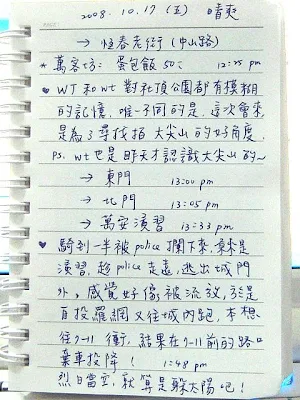 2008.10.17 (五) 晴爽
→ 恆春老街 (中山路)
* 萬客坊: 蛋包飯 50元 12:25 pm
♥ WT 和 wt 對社頂公園都有模糊
的記憶,唯一不同的是,這次會來
是為了尋找拍大尖山的好角度,
PS. wt也是昨天才認識大尖山的~
→ 東門 13:00 pm
→ 北門 13:05 pm
→ 萬安演習 13:33 pm
♥ 騎到一半被 police 攔下來,原來是
演習,趁police走遠,逃出城門
外,感覺好像被流放,於是
自投羅網又往城內跑,本想
往7-11衝,結果在7-11前的路口
棄車投降! 1:48 pm
烈日當空,就算是躲太陽吧!